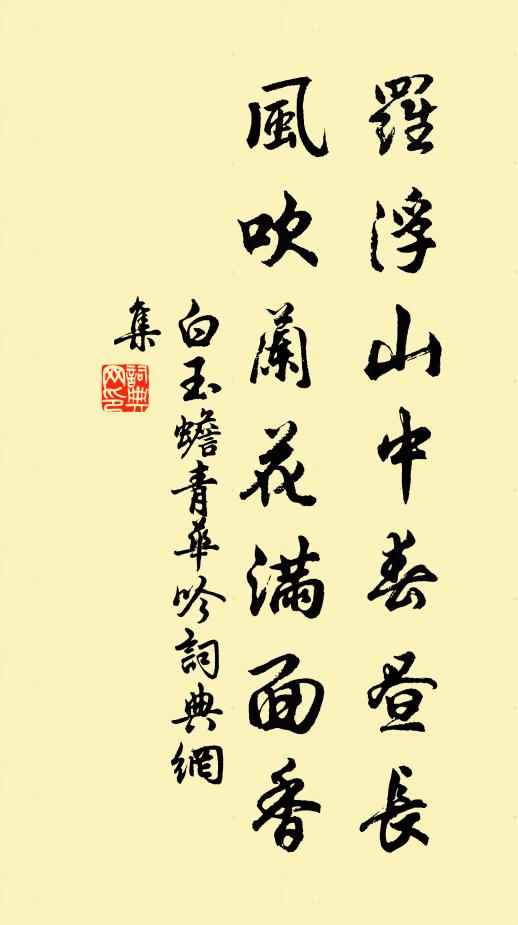 羅浮山中春晝長
風吹蘭花滿面香
白玉蟾青華吟詞典網
集
詞典
网印